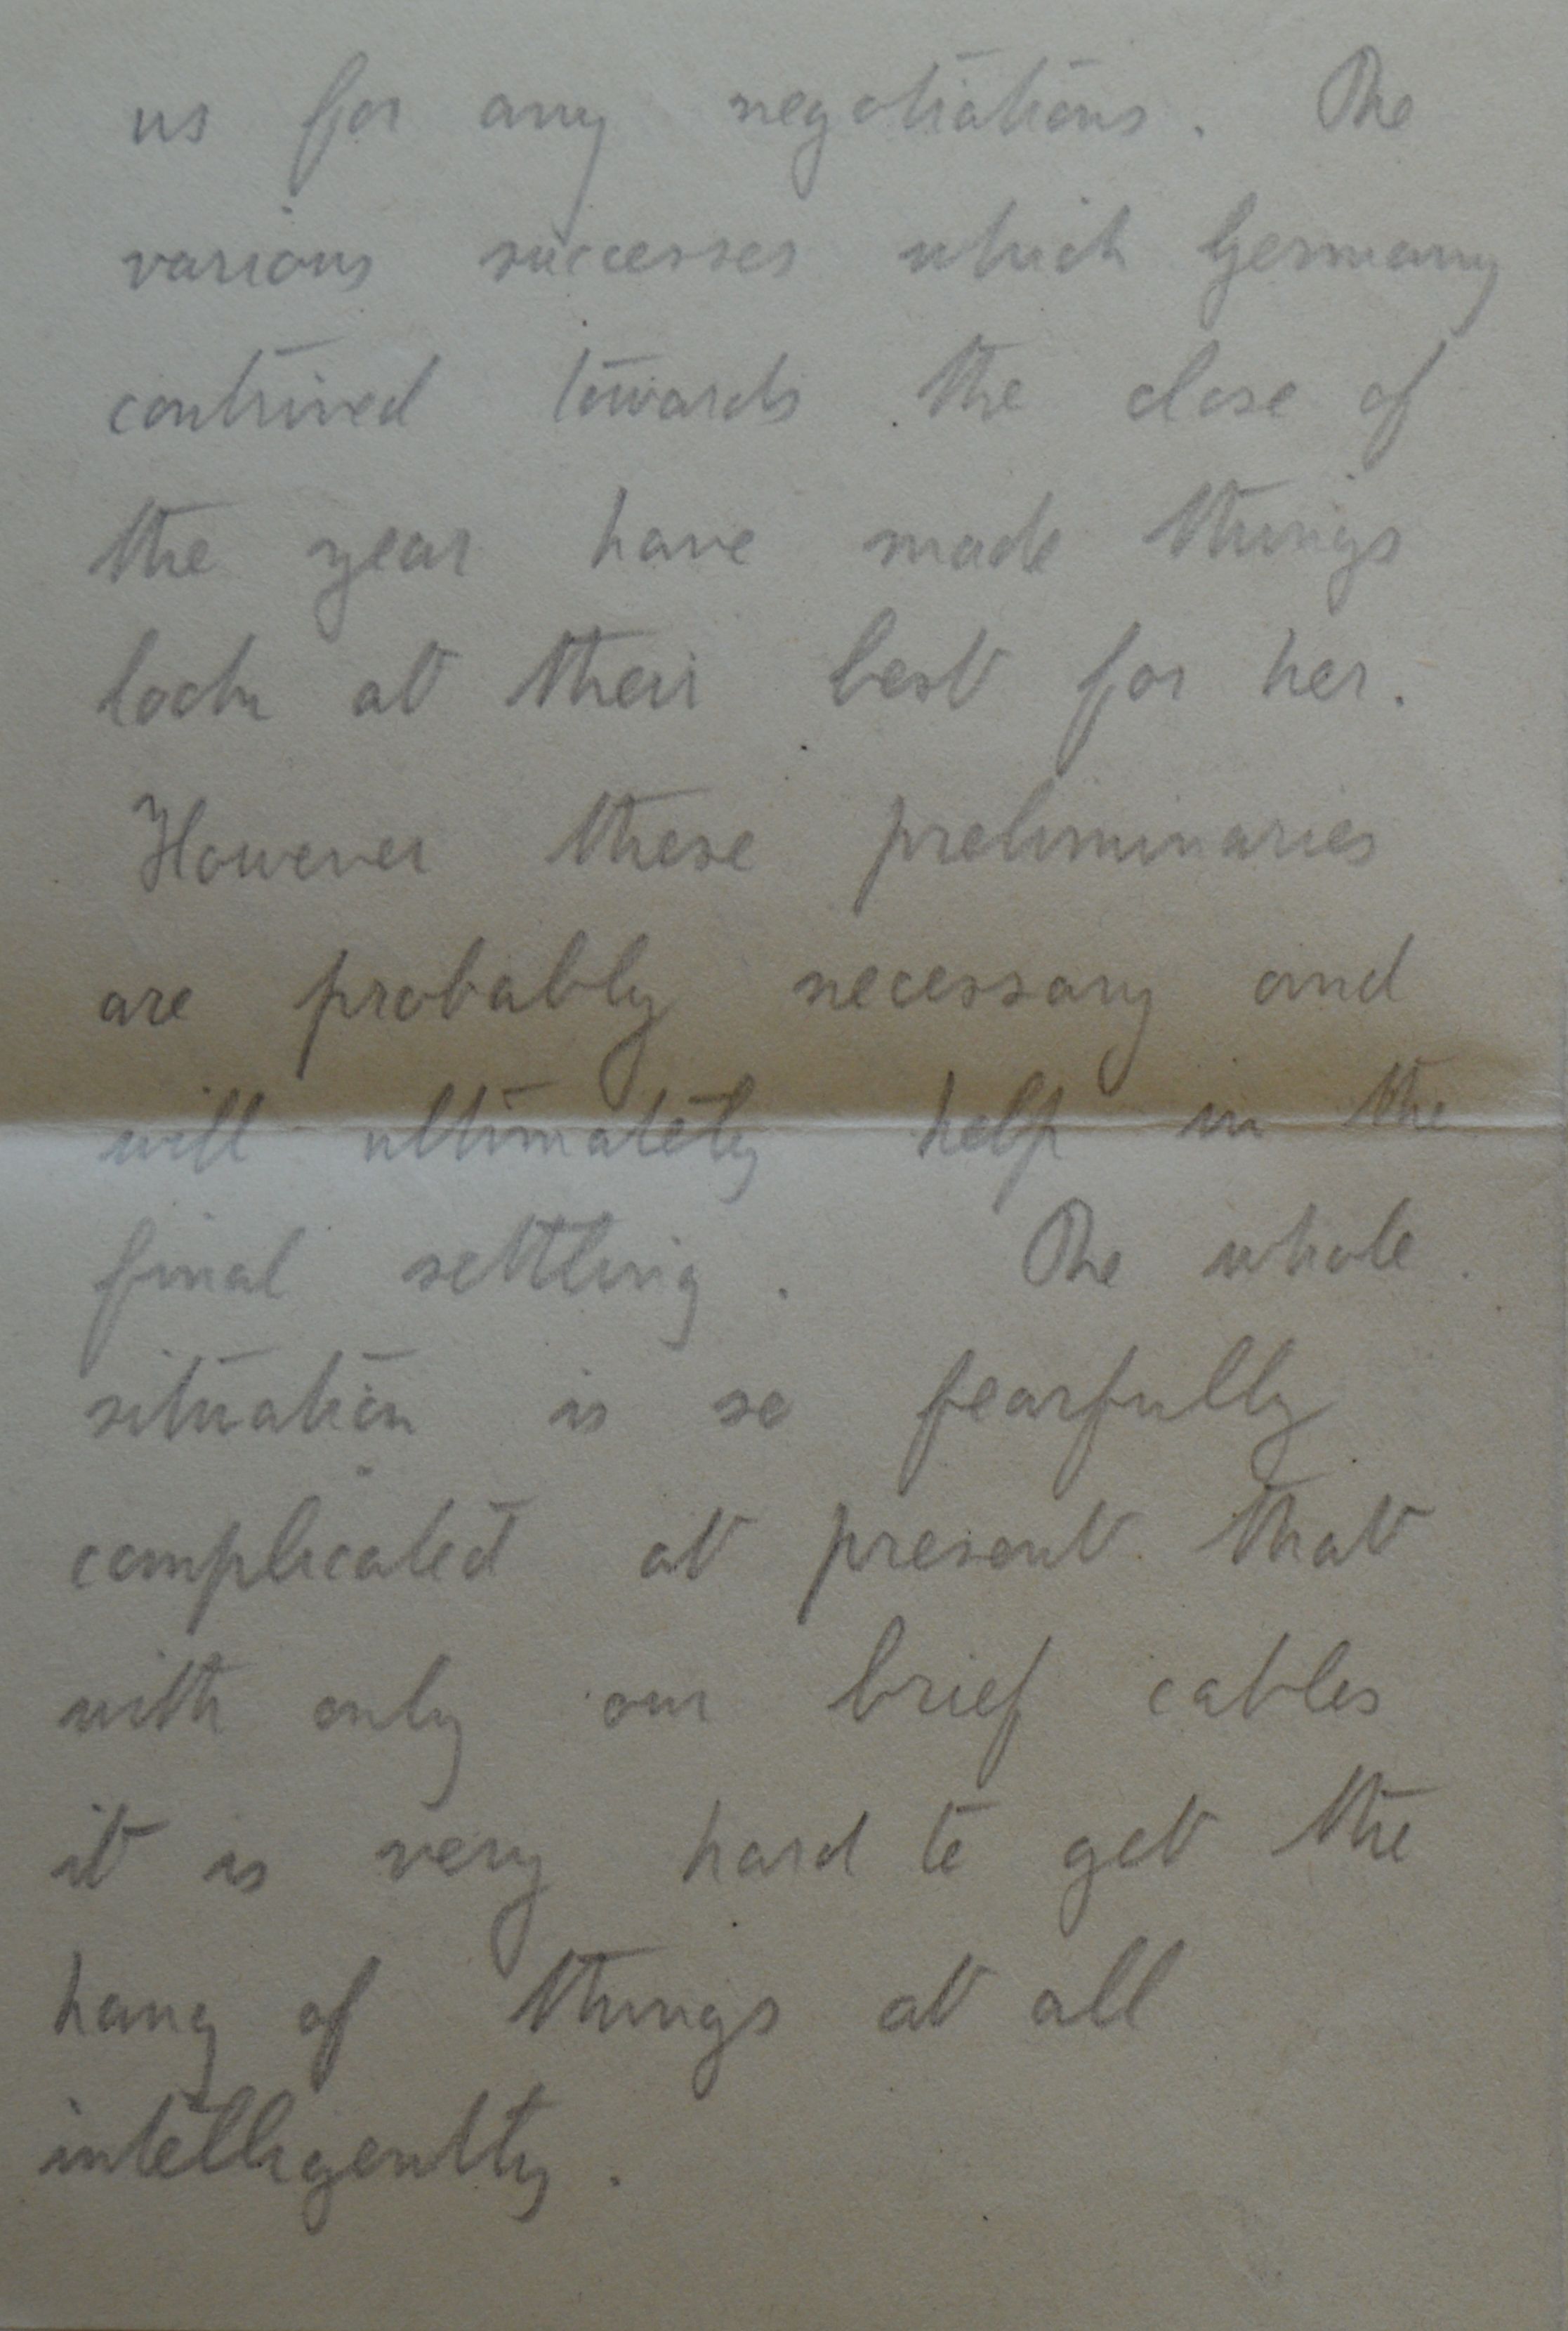 us for any negotiations. The
various successes which Germany
contrived towards the close of
the year have made things
look at their best for her.
However these preliminaries
are probably necessary and
will ultimately help in the
final settling. The whole
situation is so fearfully
complicated at present that
with only our brief cables
it is very hard to get the
hang of things at all
intelligently.